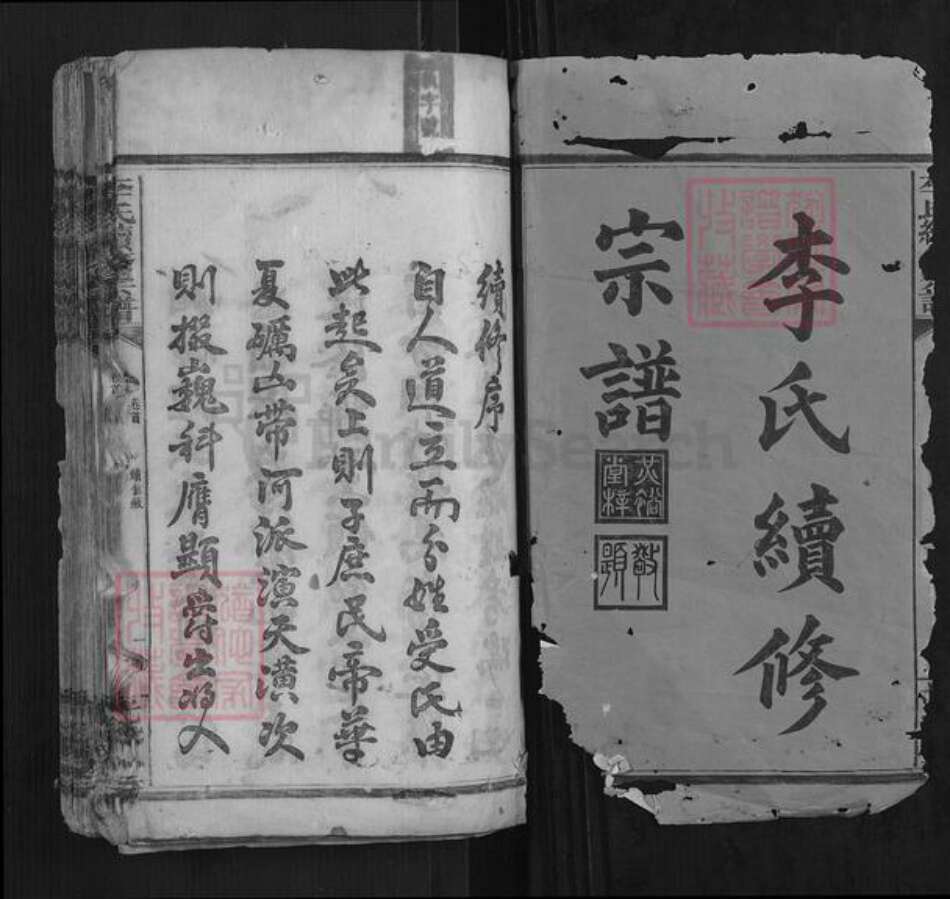 李氏續修
宗譜
敦
題
續修序
自人道立而分姓受氏由
此起矣上則子庶民帝華
夏礪山帶河派演天潢次
則掇巍科膺顯爵出將入
李氏續修宗譜
卷首
FamilySearch